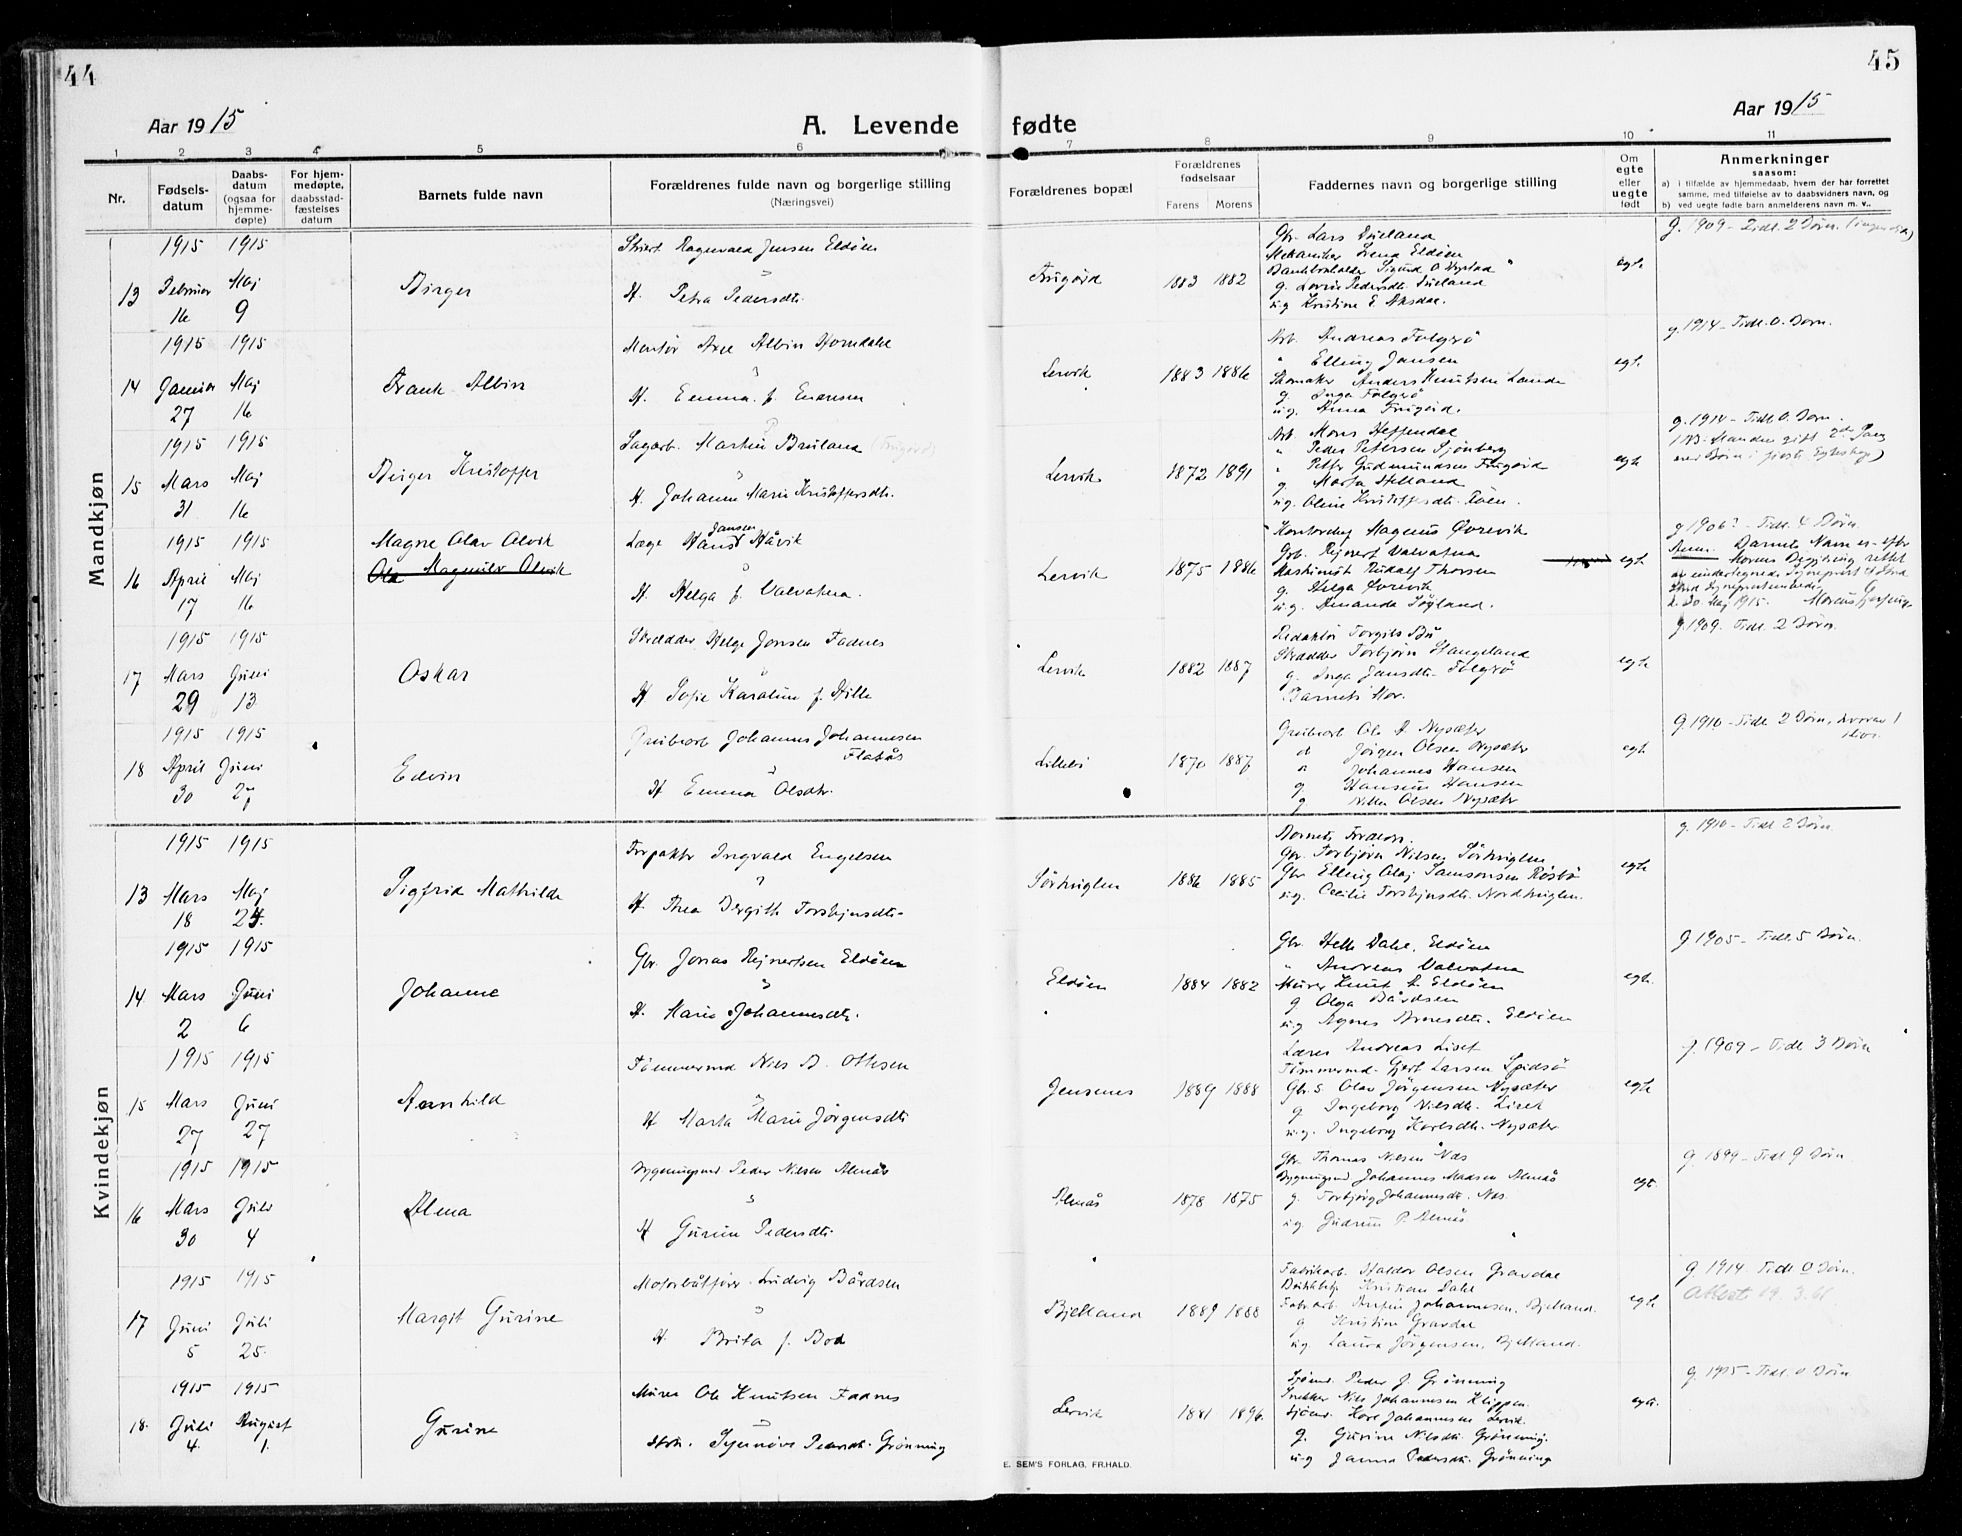 44
45
Aar 1915
A. Levende fødte
Aar 1915
1 2 3 4 5 6 7 8 9 10 11
Nr.
Fødsels-
datum
Daabs-
datum
(ogsaa for
hjemme-
døpte)
For hjem-
medøpte,
daabsstad-
fæstelses
datum
Barnets fulde navn
Forældrenes fulde navn og borgerlige stilling
(Næringsvei)
Forældrenes bopæl
Forældrenes
fødselsaar
Farens Morens
Faddernes navn og borgerlige stilling
Om
egte
eller
uegte
født
Anmerkninger
saasom:
a) i tilfælde av hjemmedaab, hvem der har forrettet
samme, med tilføielse av to daabsvidners navn, og
b) ved uegte fødte barn anmelderens navn m. v.,
Mandkjøn
13
1915 Februar 16
1915 Maj 9
Birger
Ragnvald Jensen Eldøen
H. Petra Pedersdtr
Frugård
1883 1882
Gbr. Lars Dueland
Mekaniker Eldøen
Sigurd O Nystad
g. Pedersdtr Dueland
u.g Kristine E. Aksdal.
egte
g. 1909 - Tidl. 2 Børn
14
1915 Januar 27
1915 Maj 16
Frank Albin
Montør Axel Albin Horndahl
H. Emma f. Endresen
Lervik
1883 1886
Arb. Andreas Folgerø
" Elling Jansen
Skomaker Anders Knutsen Lande
g. Inga Folgerø
u.g. Anna Frugård.
egte
g. 1914 - Tidl. 0. Børn.
15
1915 Mars 31
1915 Maj 16
Birger Kristoffer
Sagarb. Martin Bruland (Frugård)
H. Johanne Marie Kristoffersdtr.
Lervik
1872 1891
Arb Mons Heffendal
" Peder Petersen Sjønberg
" Petter Gudmundsen Frugård
g. Marta Helland
u.g. Oline Kristoffersdtr.
egte
g. 1914 - Tidl. 0. Børn.
16
1915 April 17
1915 Maj 16
Magne Olav Alvik
Ola Magnulv Alvik
Læge Hans Jansen Håvik
H. Helga f. Valvatna.
Lervik
1875 1886
Kontorchef Magnus Øvrevik
Gb. Rejnert Valvatna
Maskinist Rudolf Thorsen
g. Helga Øvrevik
u.g. Amanda Søyland.
egte
g 1906? - Tidl. 4 Børn.
Anm. Barnets Navn er efter
Morens Begjæring rettet
d. 20. Maj 1915.
17
1915 Mars 29
1915 Juni 13
Oskar
Skrædder Helge Jonsen Fadnes
H Sofie Karoline f. Hille
Lervik
1882 1887
Redaktør Torgils Bu
Skrædder Torbjørn Stangeland
g. Inga Jansdtr. Folgerø
Barnets Mor.
egte
g. 1909. Tidl. 2 Børn.
18
1915 April 30
1915 Juni 27
Edvin
Grubearb Johannes Johannesen
Flatås
H Emma Olsdtr.
Lillebø
1870 1887
Grubearb Ole A Nysæter
d Jørgen Olsen Nysæter
" Johannes Hansen
g Hansine Hansen
g Olsen Nysæter
egte
g 1910 - Tidl 2 Børn, hvorav 1
Kvindekjøn
13
1915 Mars 18
1915 Maj 24.
Sigfrid Mathilde
Forpakter Ingvald Engelsen
H. Thea Bergith Torsteinsdtr.
Sørhuglen
1886 1885
Barnets Forældre.
Gbr. Torbjørn Nielsen Sørhuglen
Gbr Elling Olaj Samsonsen Røsbø
u.g. Cecilie Torsteinsdtr. Nordhuglen.
egte
g. 1910 - Tidl 2 Børn
14.
1915 Mars 2
1915 Juni 6
Johanne
Gbr. Jonas Rejnertsen Eldøen
H. Marie Johannesdtr.
Eldøen
1884 1882
Gbr. Helle Dahl, Eldøen
" Andreas Valvatna
Murer Knut A. Eldøen
g Olga Bårdsen
u.g Agnes Arnesdtr. Eldøen
egte.
g 1905 - Tidl. 5 Børn.
15
1915 Mars 27
1915 Juni 27
Arnhild
Tømmermd Nils B. Ottesen
H Marta Marie Jørgensdtr
Jensanes
1889 1888
Lærer Andreas Liset
Tømmermd. Gjert Larsen Spidsø
Gbr S. Olav Jørgensen Nysæter
g Ingeborg Nilsdtr. Liset
u.g. Ingeborg Karlsdtr. Nysæter
egte
g. 1909 - Tidl 3 Børn
16
1915 Mars 30
1915 Juli 4
Alma
Bygningsmd Peder Nilsen Almås
H Gurine Pedersdtr.
Almås
1878 1875
Gbr. Thomas Nilsen Næs
Bygningsmd Johannes Madsen Almås
g. Torbjørg Johannesdtr. Næs.
u.g. Gudrun P. Almås
egte.
g. 1899 - Tidl 9 Børn
17
1915 Juni 5
1915 Juli 25.
Margit Gurine
Motorbåtfører Ludvig Bårdsen
H. Brita f. Bod
Bjelland
1889 1888
Fabrikarb. Haldor Olsen Gravdal
Kristian Dahl
Fabr.arb. Johannesen, Bjelland.
g Kristine Gravdal
u.g. Laura Jørgensen, Bjelland.
egte
g 1914. Tidl 0 Børn.
Attest 19.3.61
18.
1915 Juli 4.
1915 August 1.
Gurine
Murer Ole Knutsen Fadnes
Hstr. Synnøve Pedersdtr. Grønning
Lervik
1881 1896.
Sjømd. Peder J. Grønning
Snekker Nils Johannesen Klippen.
Sjømd. Karl Johannesen Lervik.
g. Gurine Nilsdtr. Grønning.
u.g Janna Pedersdtr. Grønning
egte.
g. 1915 - Tidl. 0 Børn
E. SEM'S FORLAG, FR.HALD.